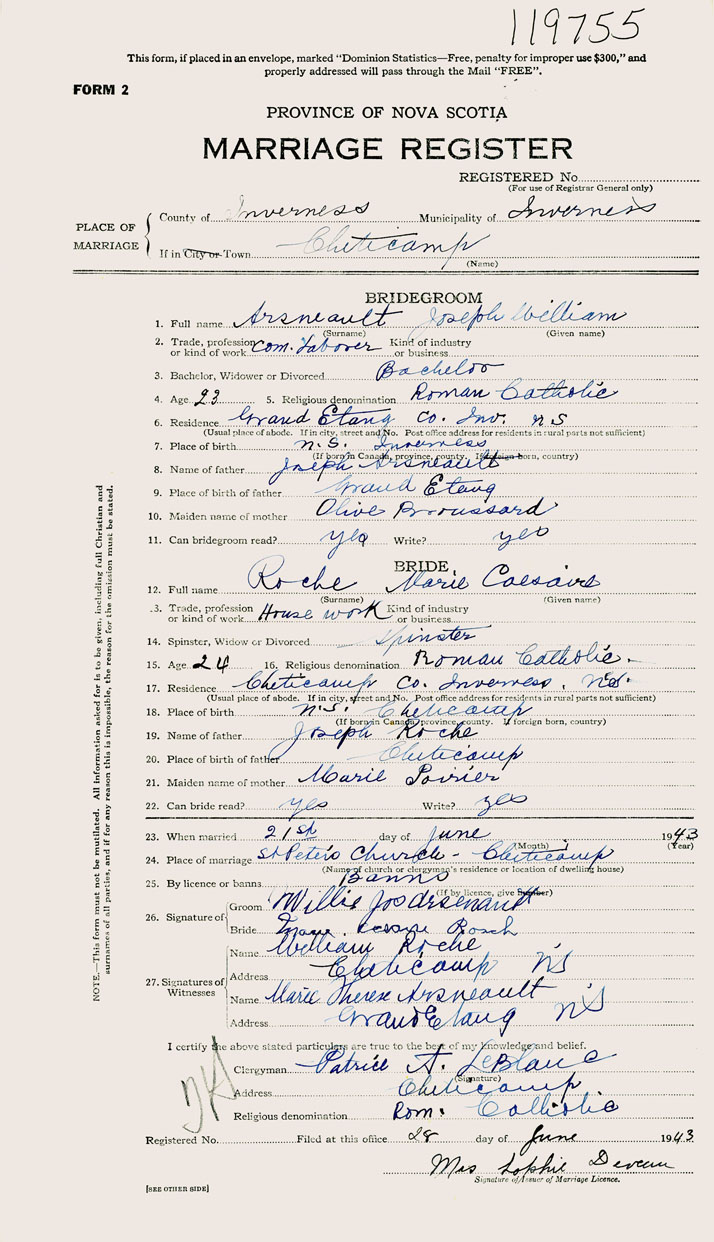 119755
This form, if placed in an envelope, marked "Dominion Statistics—Free, penalty for improper use $300," and
properly addressed will pass through the Mail "FREE".
FORM 2
PROVINCE OF NOVA SCOTIA
MARRIAGE REGISTER
REGISTERED No.
(For use of Registrar General only)
PLACE OF MARRIAGE
County of Inverness Municipality of Inverness
If in City or Town Cheticamp
(Name)
BRIDEGROOM
1. Full name Arsneault Joseph William
(Surname) (Given name)
2. Trade, profession or kind of work Com. Laborer Kind of industry or business
3. Bachelor, Widower or Divorced Bachelor
4. Age 23 5. Religious denomination Roman Catholic
6. Residence Grand Etang Co. Inv. N S
(Usual place of abode. If in city, street and No. Post office address for residents in rural parts not sufficient)
7. Place of birth N. S. Inverness
(If born in Canada, province, county. If foreign born, country)
8. Name of father Joseph Arsneault
9. Place of birth of father Grand Etang
10. Maiden name of mother Olive Broussard
11. Can bridegroom read? yes Write? yes
BRIDE
12. Full name Roche Marie Caesaire
(Surname) (Given name)
.3. Trade, profession or kind of work House work Kind of industry or business
14. Spinster, Widow or Divorced Spinster
15. Age 24 16. Religious denomination Roman Catholic.
17. Residence Cheticamp Co. Inverness, N.S.
(Usual place of abode. If in city, street and No. Post office address for residents in rural parts not sufficient)
18. Place of birth N.S. Cheticamp
(If born in Canada, province, county. If foreign born, country)
19. Name of father Joseph Roche
20. Place of birth of father Cheticamp
21. Maiden name of mother Marie Poirier
22. Can bride read? yes Write? yes
23. When married 21st day of June 1943
(Month) (Year)
24. Place of marriage St Peter's Church - Cheticamp
(Name of church or clergyman's residence or location of dwelling house)
25. By licence or banns Banns
(If by licence, give number)
26. Signature of
Groom Willie Jos Arsenault
Bride Marie Roach
27. Signatures of Witnesses
Name William Roche
Address Cheticamp NS
Name Marie Therese Arsneault
Address Grand Etang NS
I certify the above stated particulars are true to the best of my knowledge and belief.
Clergyman Patrice A. LeBlanc
(Signature)
Address Cheticamp
Religious denomination Rom. Catholic
Registered No. Filed at this office 28 day of June 1943
Mrs Sophie Deveau
Signature of Issuer of Marriage Licence.
[SEE OTHER SIDE]
NOTE.—This form must not be mutilated. All information asked for is to be given, including full Christian and
surnames of all parties, and if for any reason this is impossible, the reason for the omission must be stated.